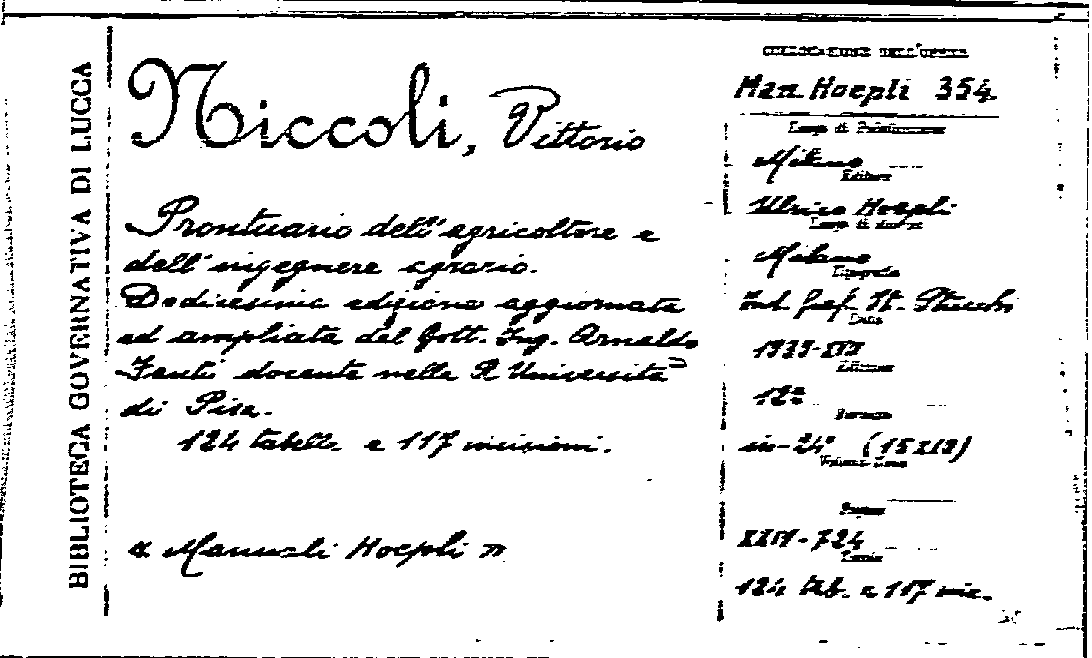 BIBLIOTECA GOVERNATIVA DI LUCCA
Niccoli, Vittorio
Prontuario dell'agricoltore e
dell'ingegnere agrario.
Dodicesima edizione aggiornata
ed ampliata dal Dott. Ing. Arnaldo
Fanti docente nella R. Università
di Pisa.
124 tabelle e 117 incisioni.
« Manuali Hoepli »
COLLOCAZIONE DELL'OPERA
Man. Hoepli 354
Luogo di Pubblicazione
Milano
Editore
Ulrico Hoepli
Luogo di stampa
Milano
Tipografia
Ind. Graf. It. Stucchi
Data
Edizione
12ª
Formato
in-24° (15x10)
Pagine
XXIV-724
Tavole
124 tab. e 117 inc.